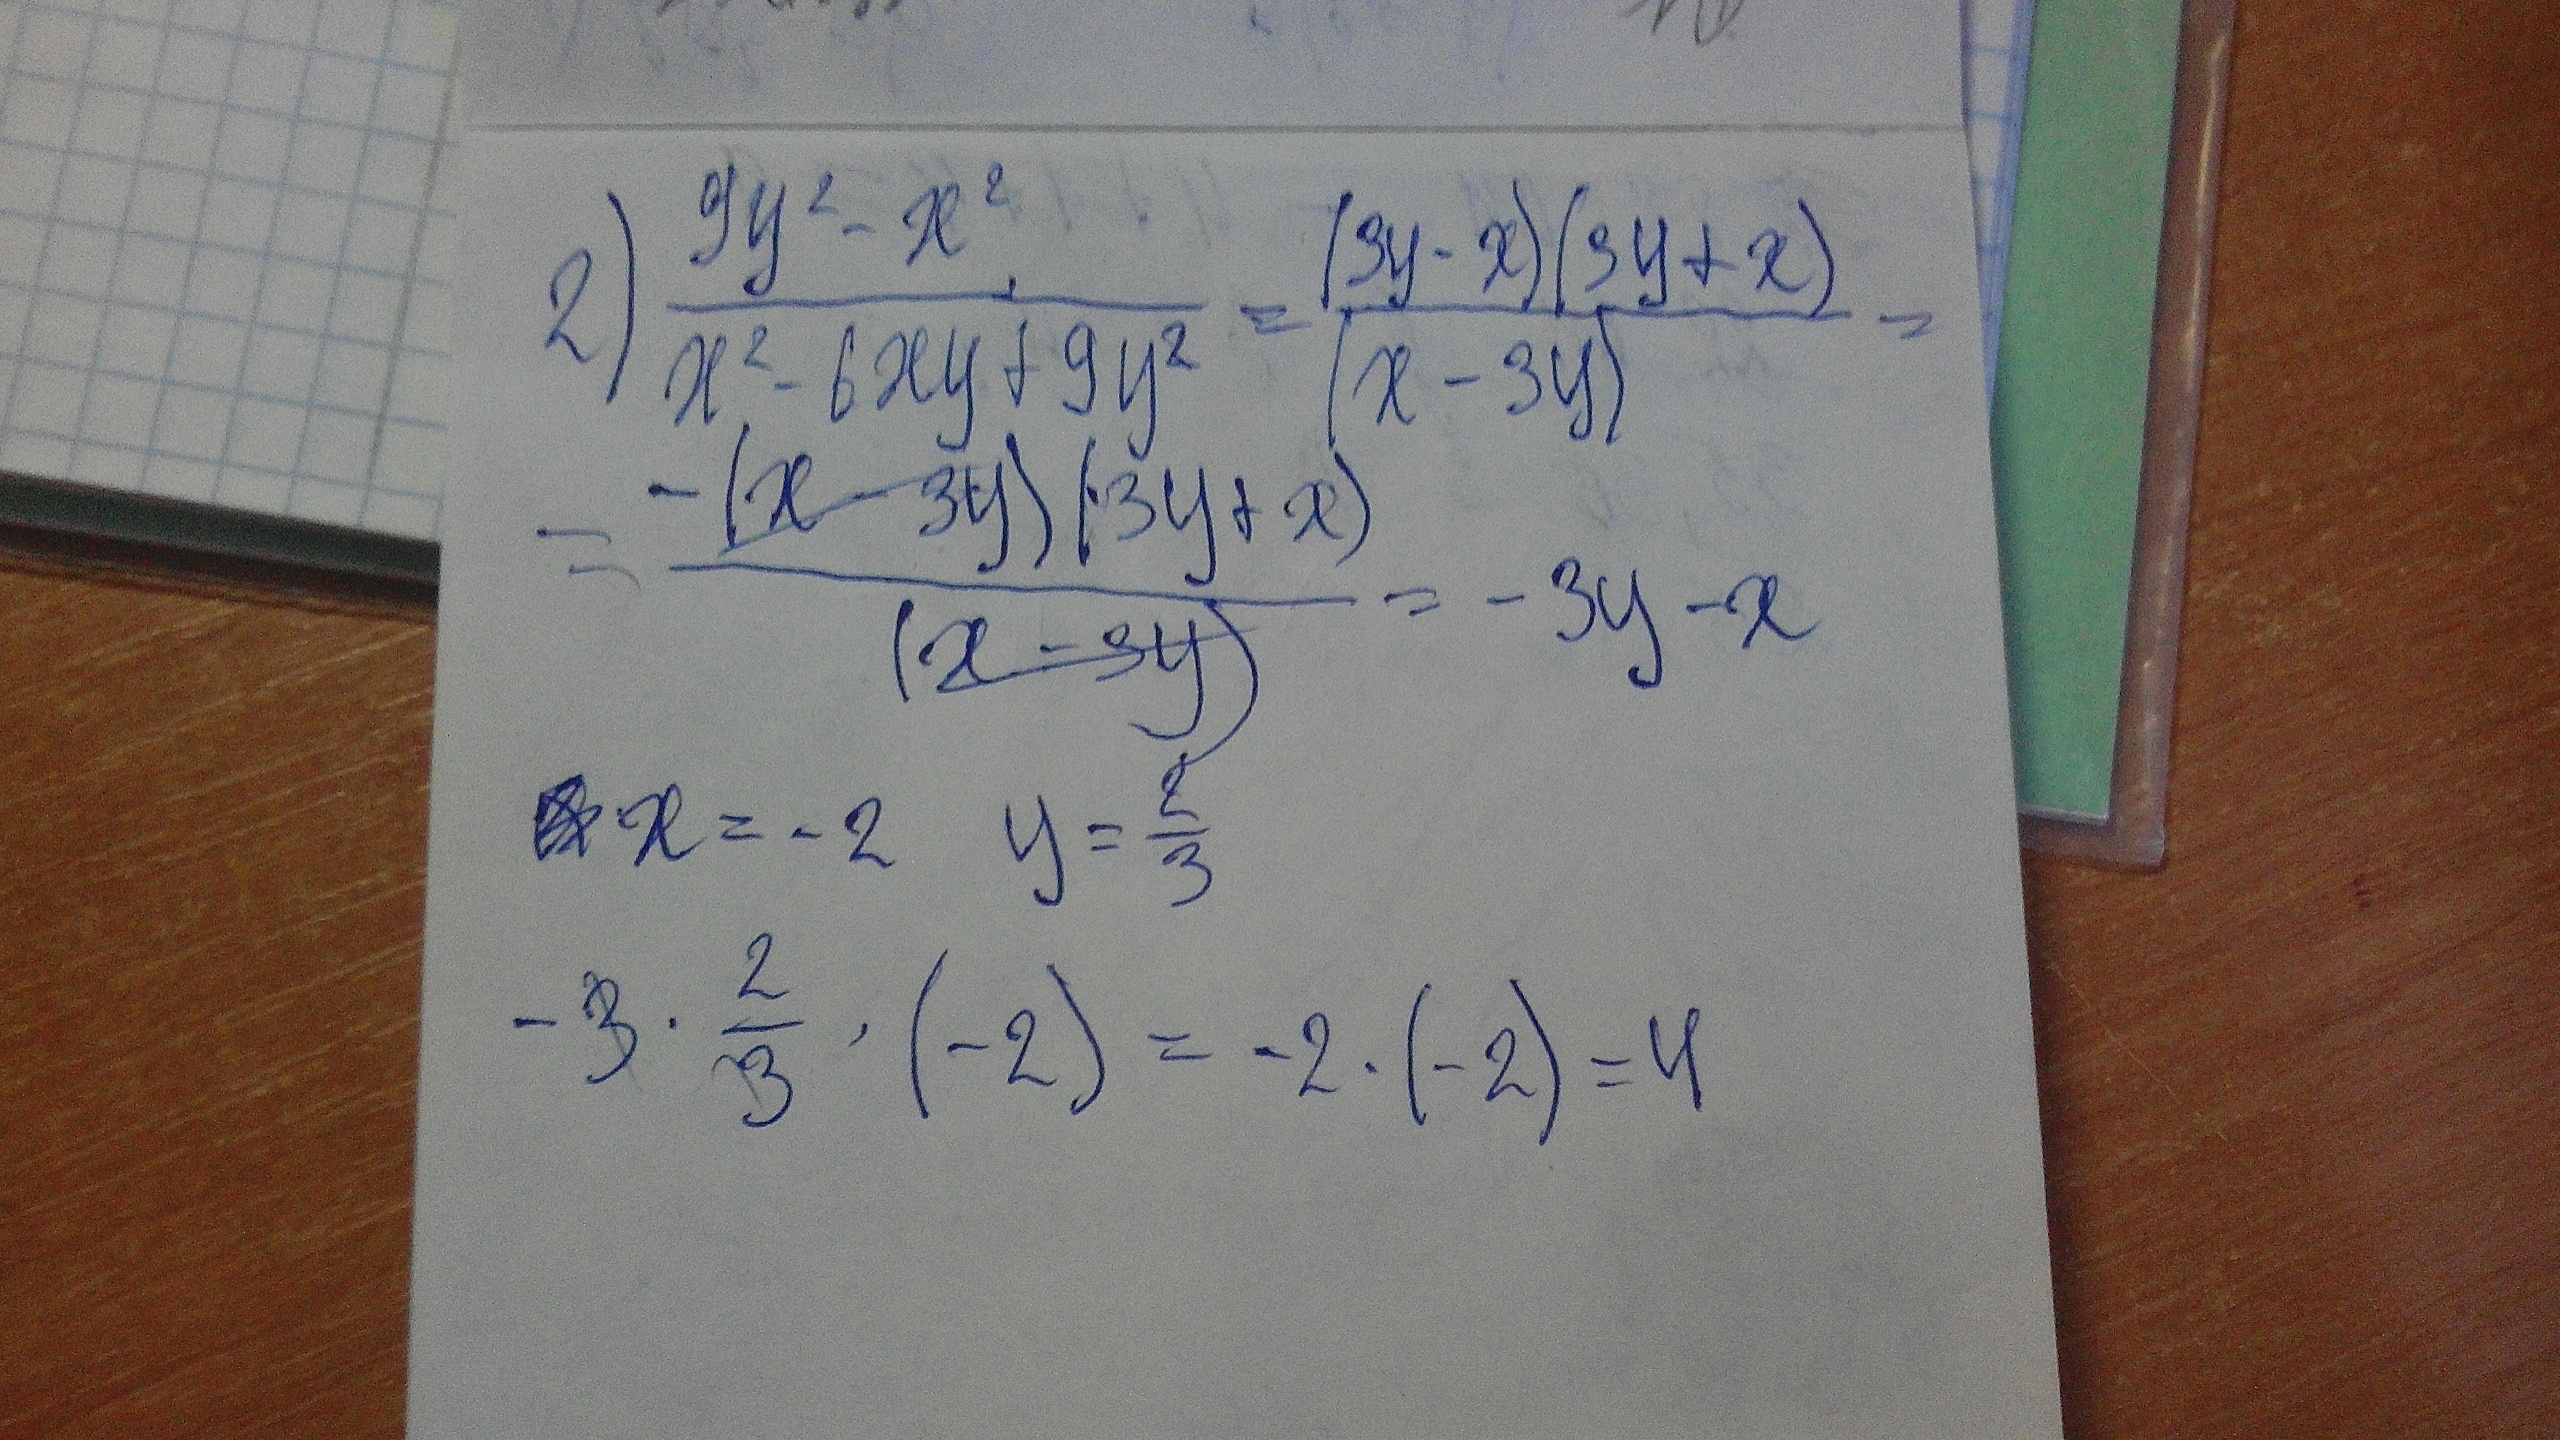 2) \frac{9y² - x²}{x² - 6xy + 9y²} = \frac{(3y - x)(3y + x)}{(x - 3y)} =
= \frac{-(x - 3y)(3y + x)}{(x - 3y)} = -3y - x
x = -2 y = \frac{2}{3}
-3 · \frac{2}{3} · (-2) = -2 · (-2) = 4